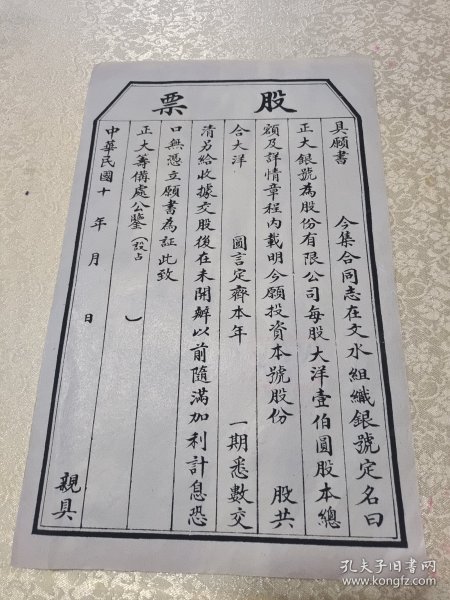 股票
具願書　今集合同志在文水組織銀號定名曰
正大銀號為股份有限公司每股大洋壹伯圓股本總
額及詳情章程內載明今願投資本號股份　股共
合大洋　圓言定齊本年　一期悉數交
清另給收據交股後在未開辦以前隨滿加利計息恐
口無憑立願書為証此致
正大籌備處公鑒（設占　）
中華民國十　年　月　日
親具
孔夫子旧书网
www.kongfz.com